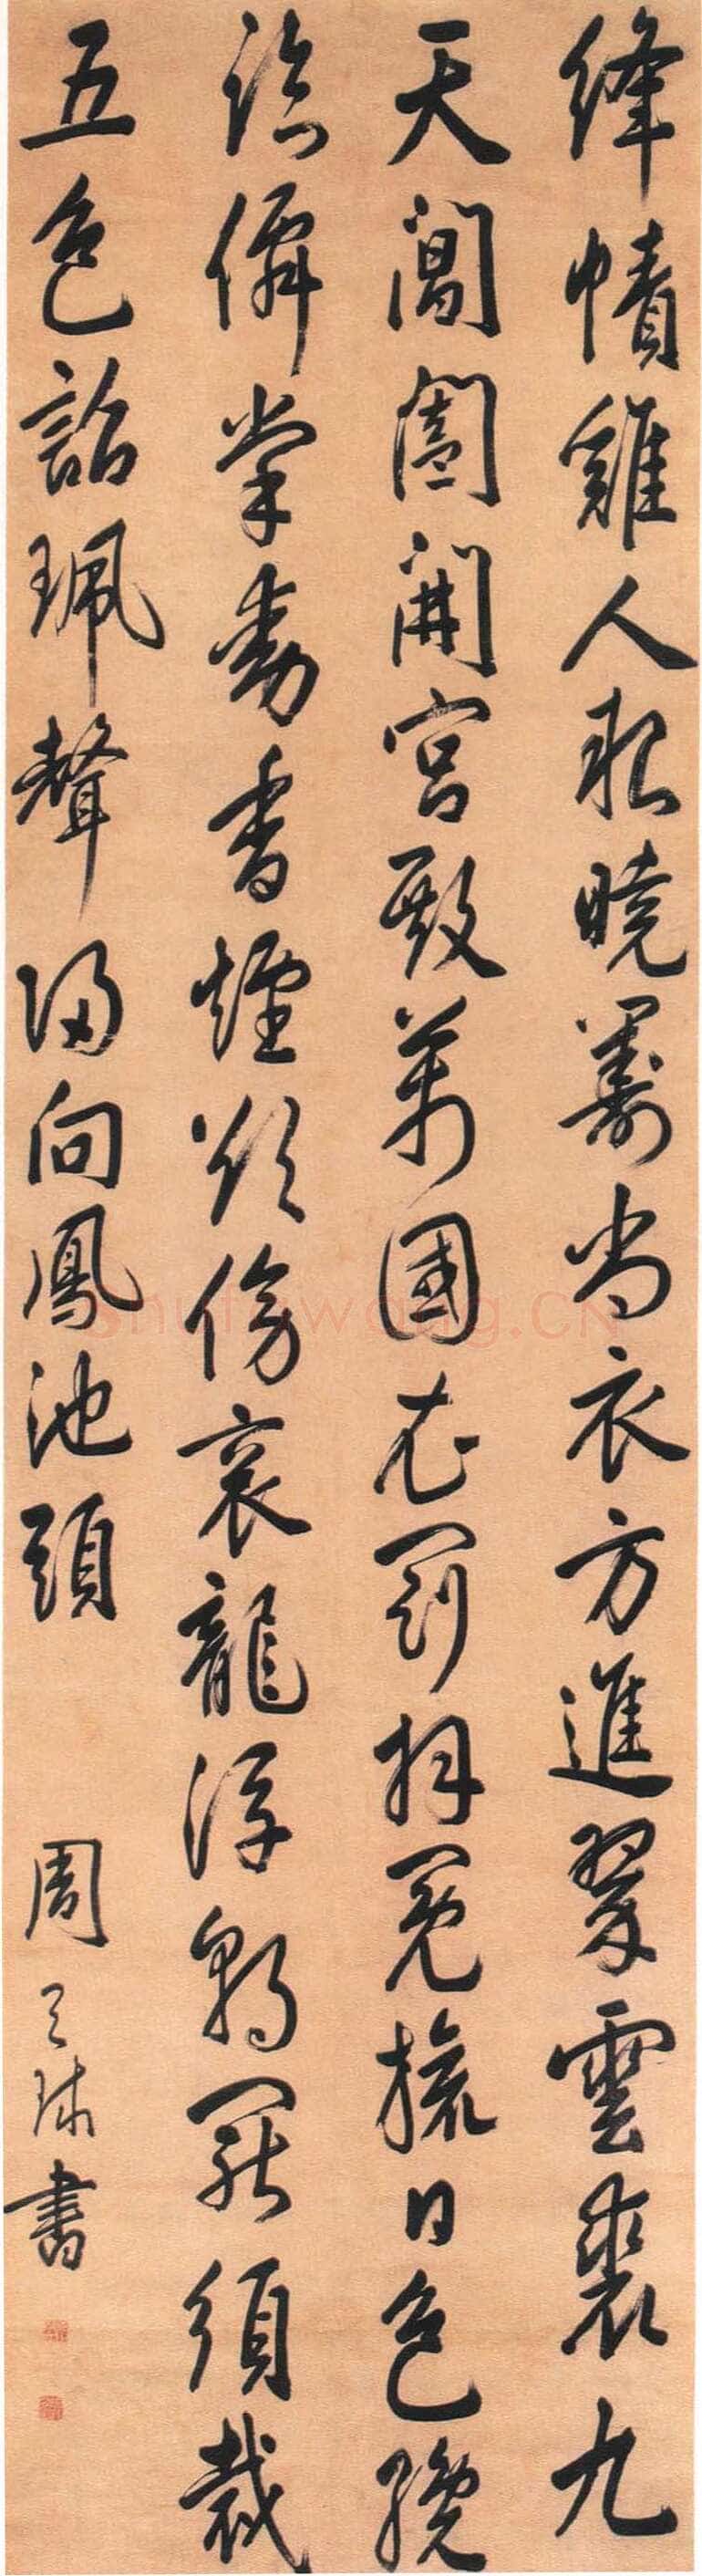 絳幘雞人報曉籌尚衣方進翠雲裘九
天閶闔開宮殿萬國衣冠拜冕旒日色纔
臨僊掌動香煙欲傍袞龍浮朝罷須裁
五色詔珮聲歸向鳳池頭
周天球書
shufawang.CN